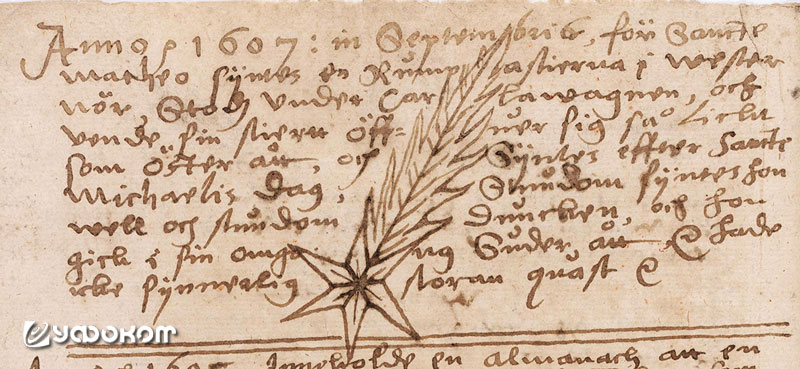 Anno 1607: in Septembris, för Sancte
Matheo syntes en Rumpastierna i wester
nör, Stod under Carlawagnen, och
vende sin stiertt öffuer sig så licht
som öster att, och Syntes effter Sancte
Michaelis dag, Stundom syntes hon
well och stundom Duncken, och hon
gick i sin omgång Suder att & hade
icke synnerlig storan quast &
уфоком
inneholde en almanach att en